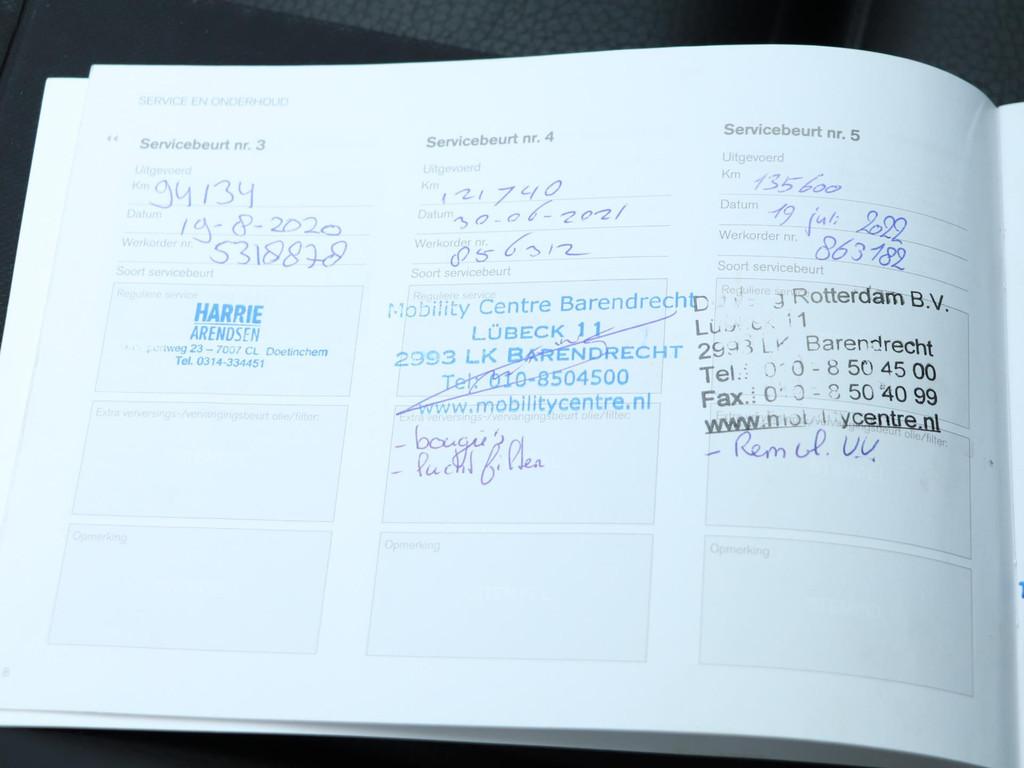 SERVICE EN ONDERHOUD
Servicebeurt nr. 3
Uitgevoerd
Km 94134
Datum 19-8-2020
Werkorder nr. 5318878
Soort servicebeurt
Reguliere service
HARRIE
ARENDSEN
23 – 7007 CL Doetinchem
Tel. 0314-334451
Extra verversings-/vervangingsbeurt olie/filter:
Opmerking
Servicebeurt nr. 4
Uitgevoerd
Km 121740
Datum 30-06-2021
Werkorder nr. 856312
Soort servicebeurt
Reguliere service
Mobility Centre Barendrecht
LÜBECK 11
2993 LK BARENDRECHT
Tel: 010-8504500
www.mobilitycentre.nl
Extra verversings-/vervangingsbeurt olie/filter:
- bougie's
- luchtfilter
Opmerking
Servicebeurt nr. 5
Uitgevoerd
Km 135600
Datum 19 juli 2022
Werkorder nr. 863182
Soort servicebeurt
Reguliere service
Rotterdam B.V.
11
Barendrecht
Tel.: 8 50 45 00
Fax.: 8 50 40 99
www.mobilitycentre.nl
olie/filter:
- Rem vl. V.V.
Opmerking
8